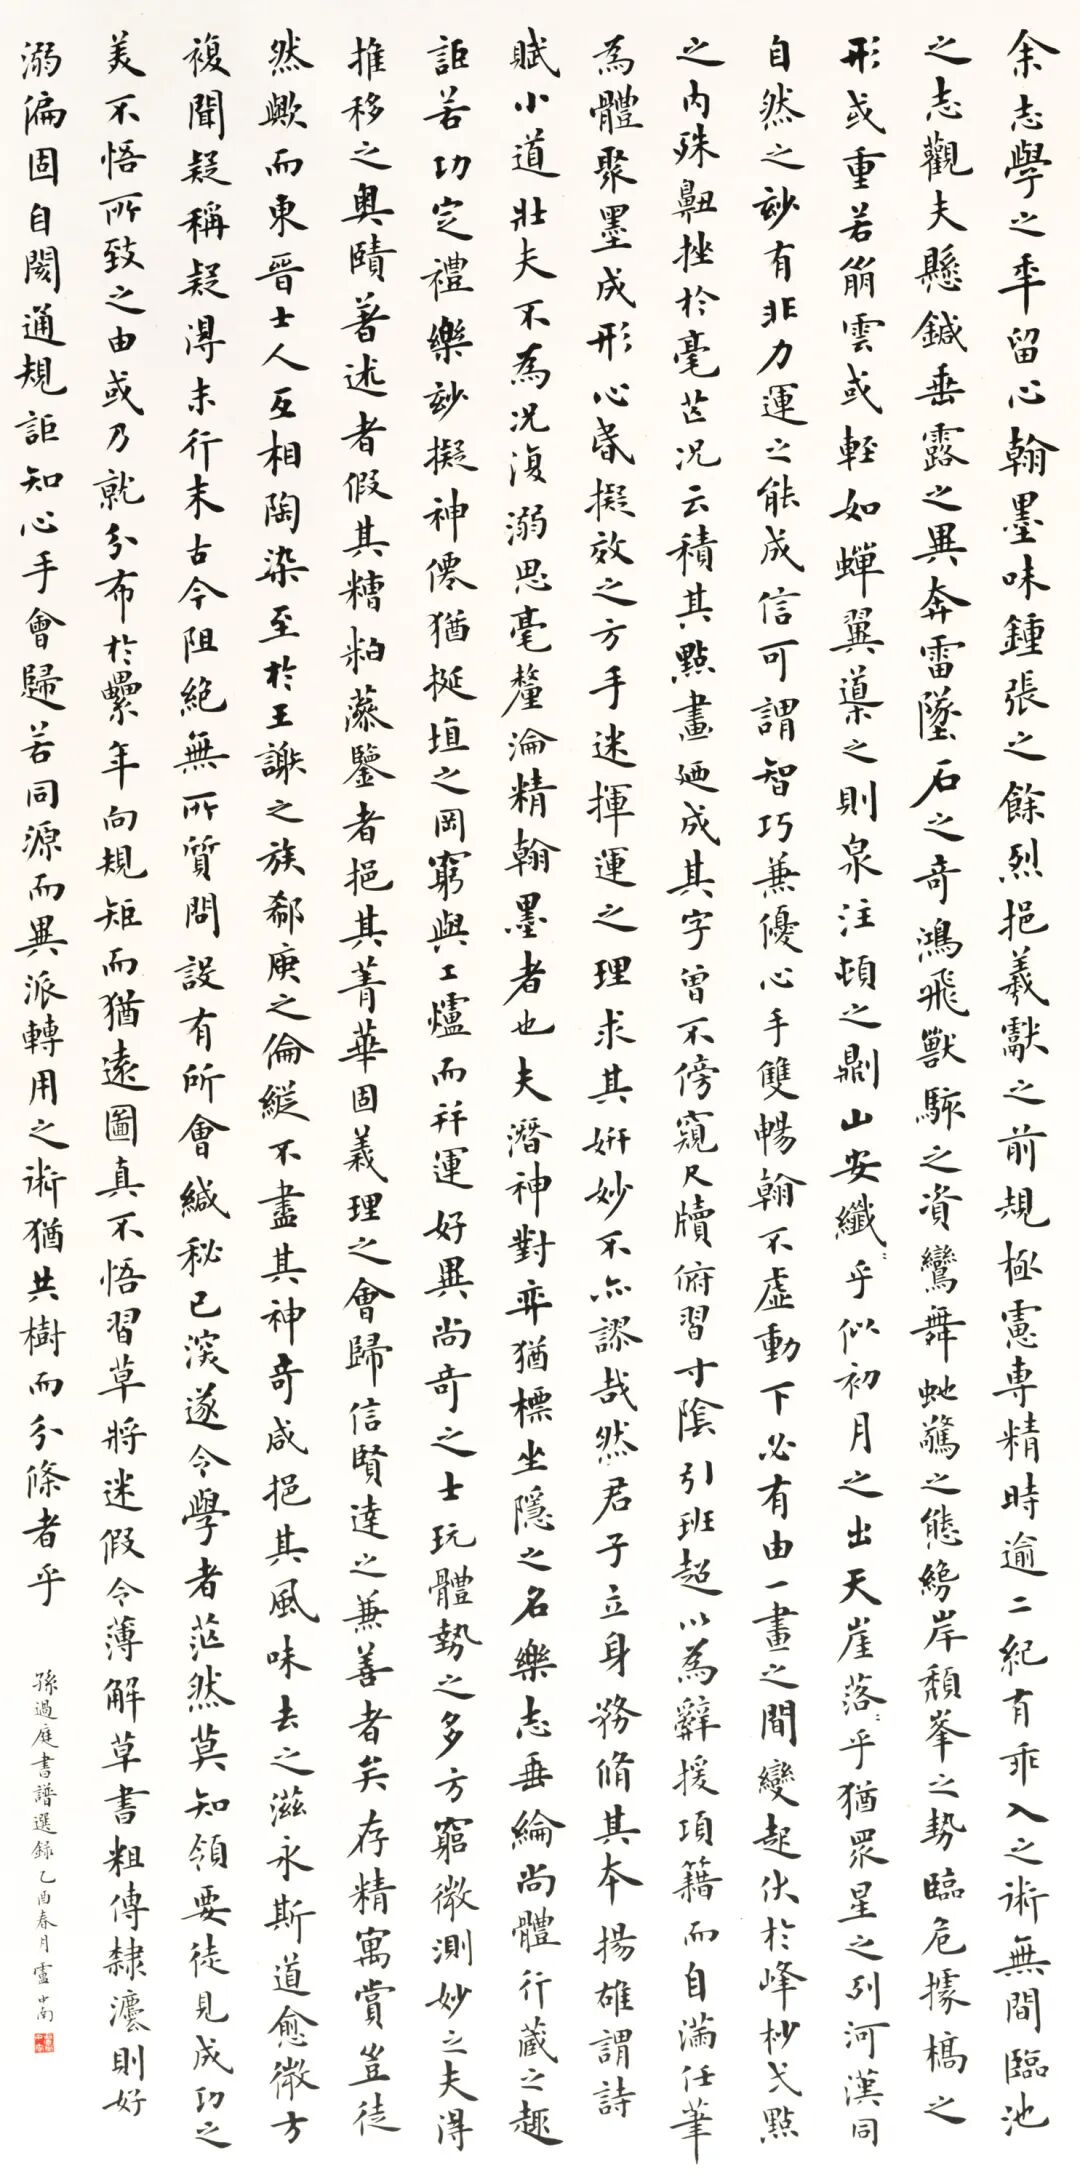 余志學之年留心翰墨味鍾張之餘烈挹羲獻之前規極慮專精時逾二紀有乖入之術無間臨池
之志觀夫懸鍼垂露之異奔雷墜石之奇鴻飛獸駭之資鸞舞虵驚之態絕岸頹峯之勢臨危據槁之
形或重若崩雲或輕如蟬翼導之則泉注頓之則山安纖〻乎似初月之出天崖落〻乎猶眾星之列河漢同
自然之玅有非力運之能成信可謂智巧兼優心手雙暢翰不虛動下必有由一畫之間變起伏於峰杪一點
之內殊衄挫於毫芒況云積其點畫廼成其字曾不傍窺尺牘俯習寸陰引班超以為辭援項籍而自滿任筆
為體聚墨成形心昏擬效之方手迷揮運之理求其妍妙不亦謬哉然君子立身務脩其本揚雄謂詩
賦小道壯夫不為況復溺思毫釐淪精翰墨者也夫潛神對弈猶標坐隱之名樂志垂綸尚體行藏之趣
詎若功定禮樂玅擬神僊猶挻埴之罔窮與工爐而并運好異尚奇之士玩體勢之多方窮微測妙之夫得
推移之奥賾著述者假其糟粕藻鑒者挹其菁華固義理之會歸信賢達之兼善者矣存精寓賞豈徒
然歟而東晉士人互相陶染至於王謝之族郗庾之倫縱不盡其神奇咸挹其風味去之滋永斯道愈微方
複聞疑稱疑得末行末古今阻絕無所質問設有所會緘秘已深遂令學者茫然莫知領要徒見成功之
美不悟所致之由或乃就分布於累年向規矩而猶遠圖真不悟習草將迷假令薄解草書粗傳隸灋則好
溺偏固自閡通規詎知心手會歸若同源而異派轉用之術猶共樹而分條者乎
孫過庭書譜選錄乙酉春月盧中南